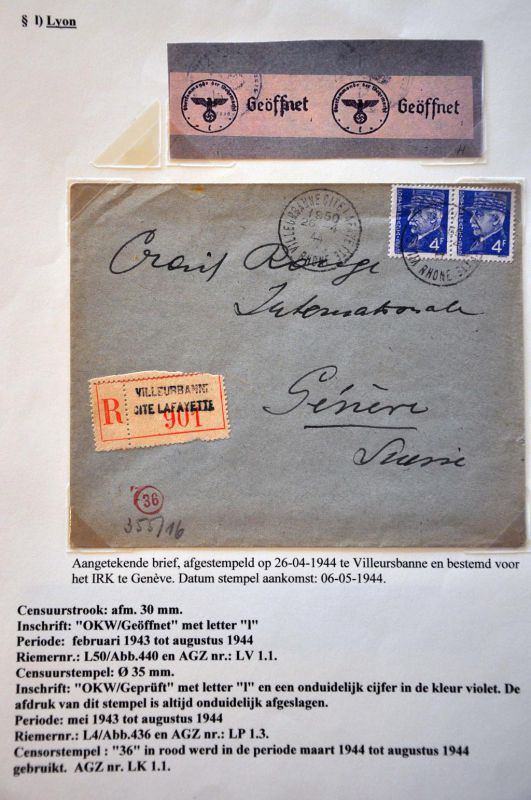 § l) Lyon
Geöffnet Geöffnet
Oberkommando der Wehrmacht
Oberkommando der Wehrmacht
VILLEURBANNE CITE LAFAYETTE
1850
26 - 4
44
RHONE
4F 4F
Croix Rouge
Internationale
Genève
Suisse
R
VILLEURBANNE
CITE LAFAYETTE
901
36
355/16
Aangetekende brief, afgestempeld op 26-04-1944 te Villeursbanne en bestemd voor
het IRK te Genève. Datum stempel aankomst: 06-05-1944.
Censuurstrook: afm. 30 mm.
Inschrift: "OKW/Geöffnet" met letter "l"
Periode: februari 1943 tot augustus 1944
Riemernr.: L50/Abb.440 en AGZ nr.: LV 1.1.
Censuurstempel: Ø 35 mm.
Inschrift: "OKW/Geprüft" met letter "l" en een onduidelijk cijfer in de kleur violet. De
afdruk van dit stempel is altijd onduidelijk afgeslagen.
Periode: mei 1943 tot augustus 1944
Riemernr.: L4/Abb.436 en AGZ nr.: LP 1.3.
Censorstempel : "36" in rood werd in de periode maart 1944 tot augustus 1944
gebruikt. AGZ nr. LK 1.1.